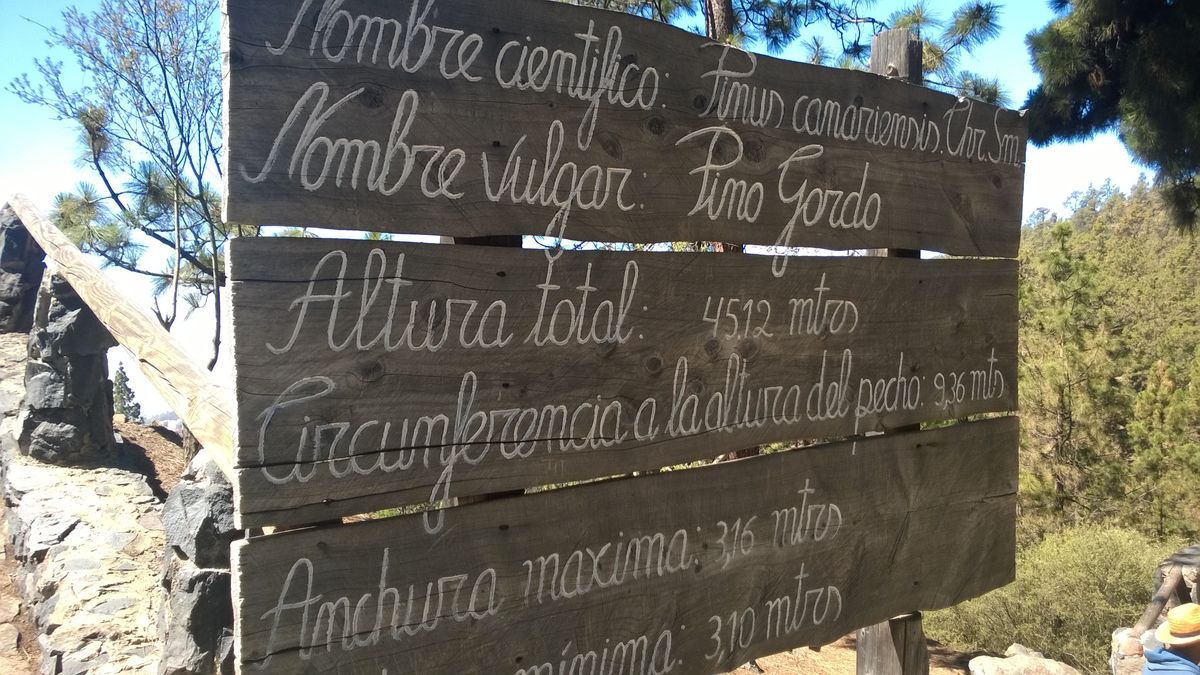 Nombre científico: Pinus canariensis. Chr. Sm.
Nombre vulgar: Pino Gordo
Altura total: 45,12 mtrs
Circunferencia a la altura del pecho: 9,36 mts
Anchura maxima: 3,16 mtrs
mínima: 3,10 mtrs